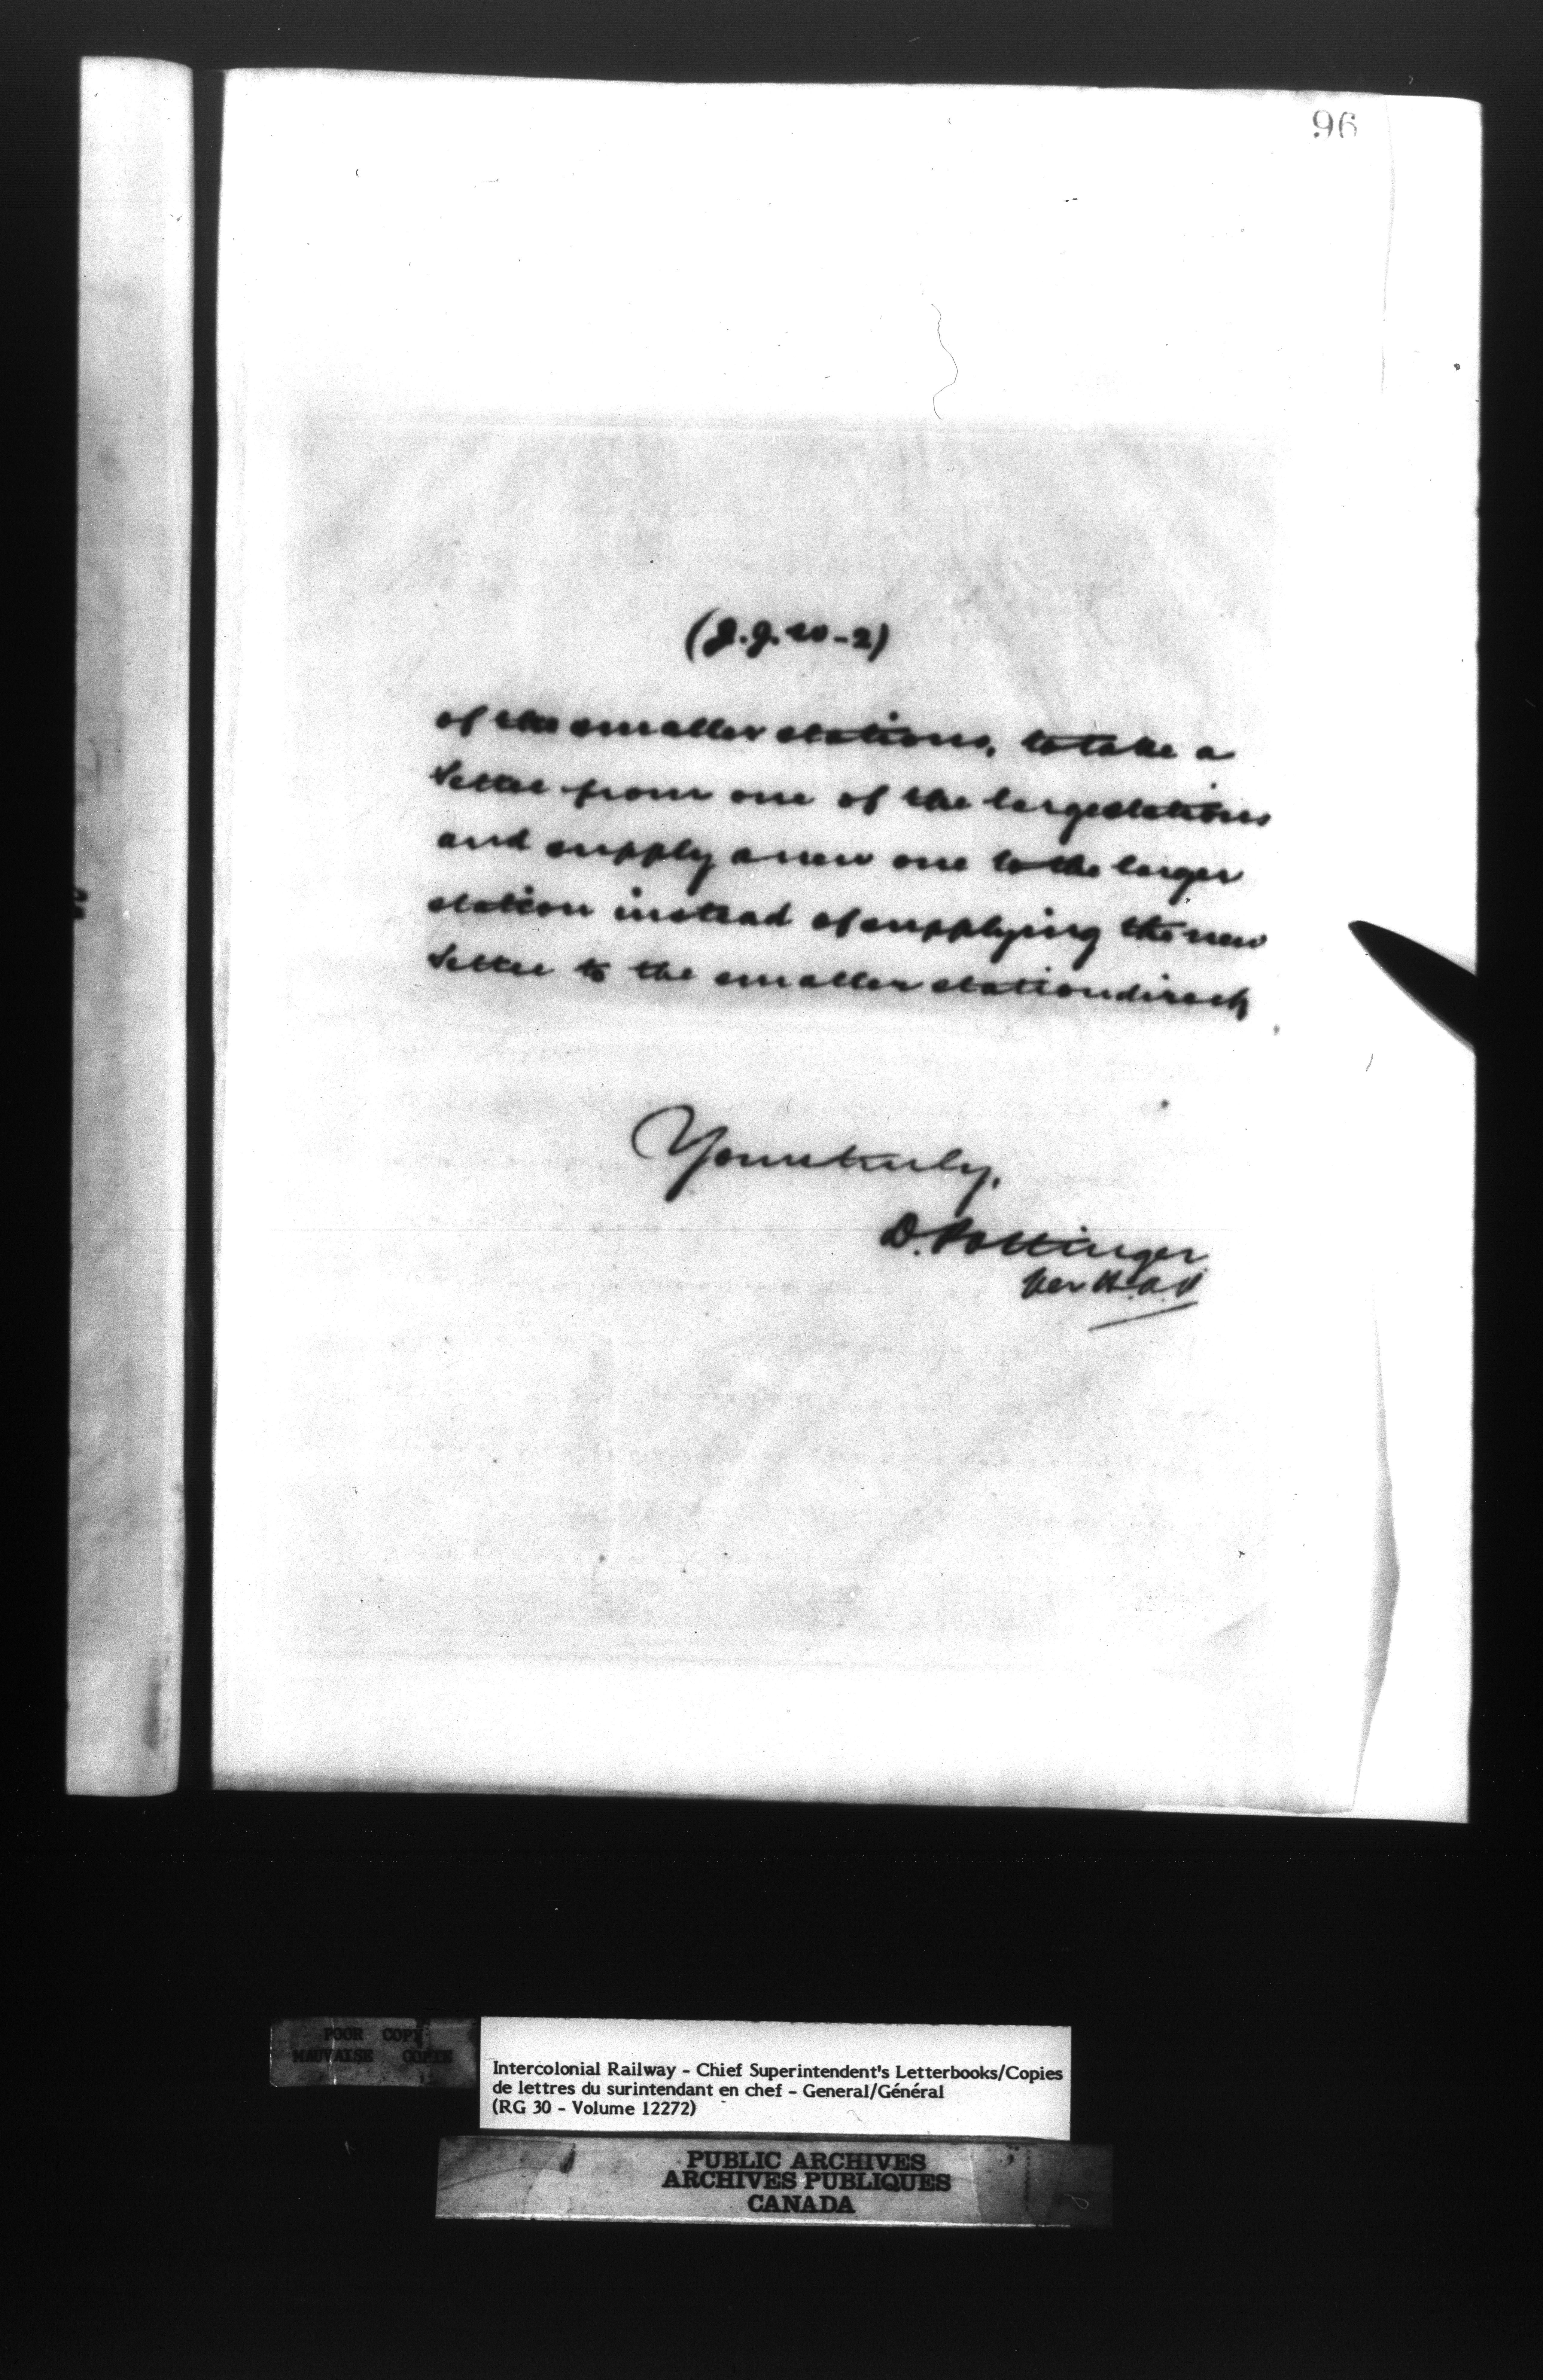 96
(J.J.W-2)
of the smaller stations, to take a
settee from one of the large stations
and supply a new one to the larger
station instead of supplying the new
settee to the smaller station direct
Yours truly,
D. Pottinger
Per
POOR COPY
MAUVAISE COPIE
Intercolonial Railway - Chief Superintendent's Letterbooks/Copies
de lettres du surintendant en chef - General/Général
(RG 30 - Volume 12272)
PUBLIC ARCHIVES
ARCHIVES PUBLIQUES
CANADA